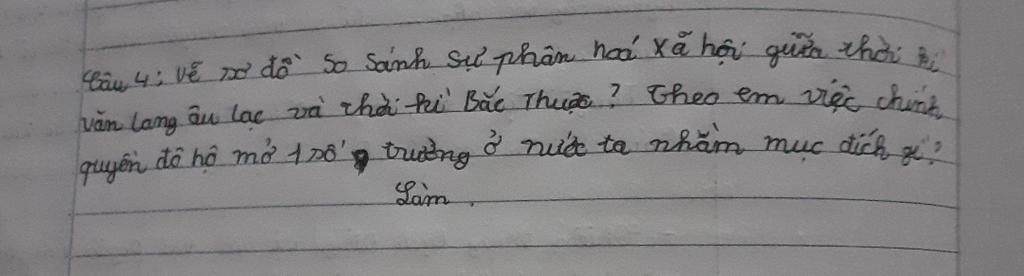 Câu 4: Vẽ sơ đồ so sánh sự phân hoá xã hội giữa thời kì
văn lang âu lạc và thời kì Bắc Thuộc? Theo em việc chính
quyền đô hộ mở 1 số trường ở nước ta nhằm mục đích gì?
Làm.